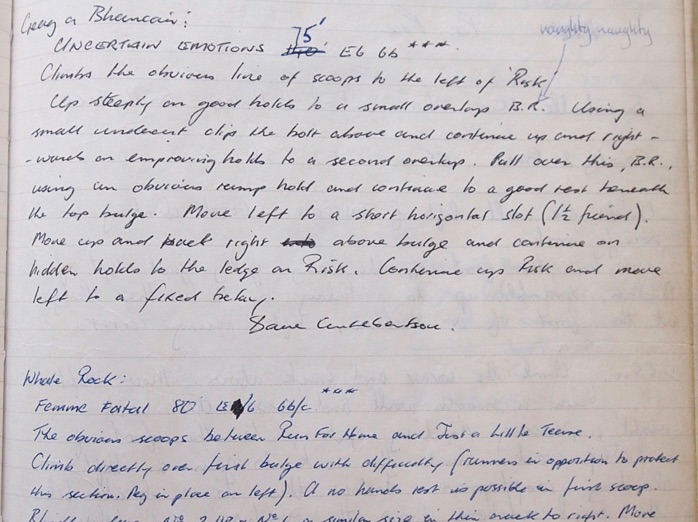 Creag a Bhancair:
75'
UNCERTAIN EMOTIONS E6 6b ***.
naughty, naughty
Climbs the obvious line of scoops to the left of 'Risk
Up steeply on good holds to a small overlap B.R. Using a
small undercut clip the bolt above and continue up and right-
-wards on improving holds to a second overlap. Pull over this, B.R.,
using an obvious ramp hold and continue to a good rest beneath
the top bulge. Move left to a short horizontal slot (1½ friend).
Move up and right above bulge and continue on
hidden holds to the ledge on Risk. Continue up Risk and move
left to a fixed belay.
Dave Cuthbertson.
Whale Rock:
Femme Fatal 80' E /6 6b/c ***
The obvious scoops between Run For Home and Just a Little Tease.
Climb directly over first bulge with difficulty. (runners in opposition to protect
this section. Peg in place on left). A no hands rest is possible in first scoop.
in thin crack to right. Move